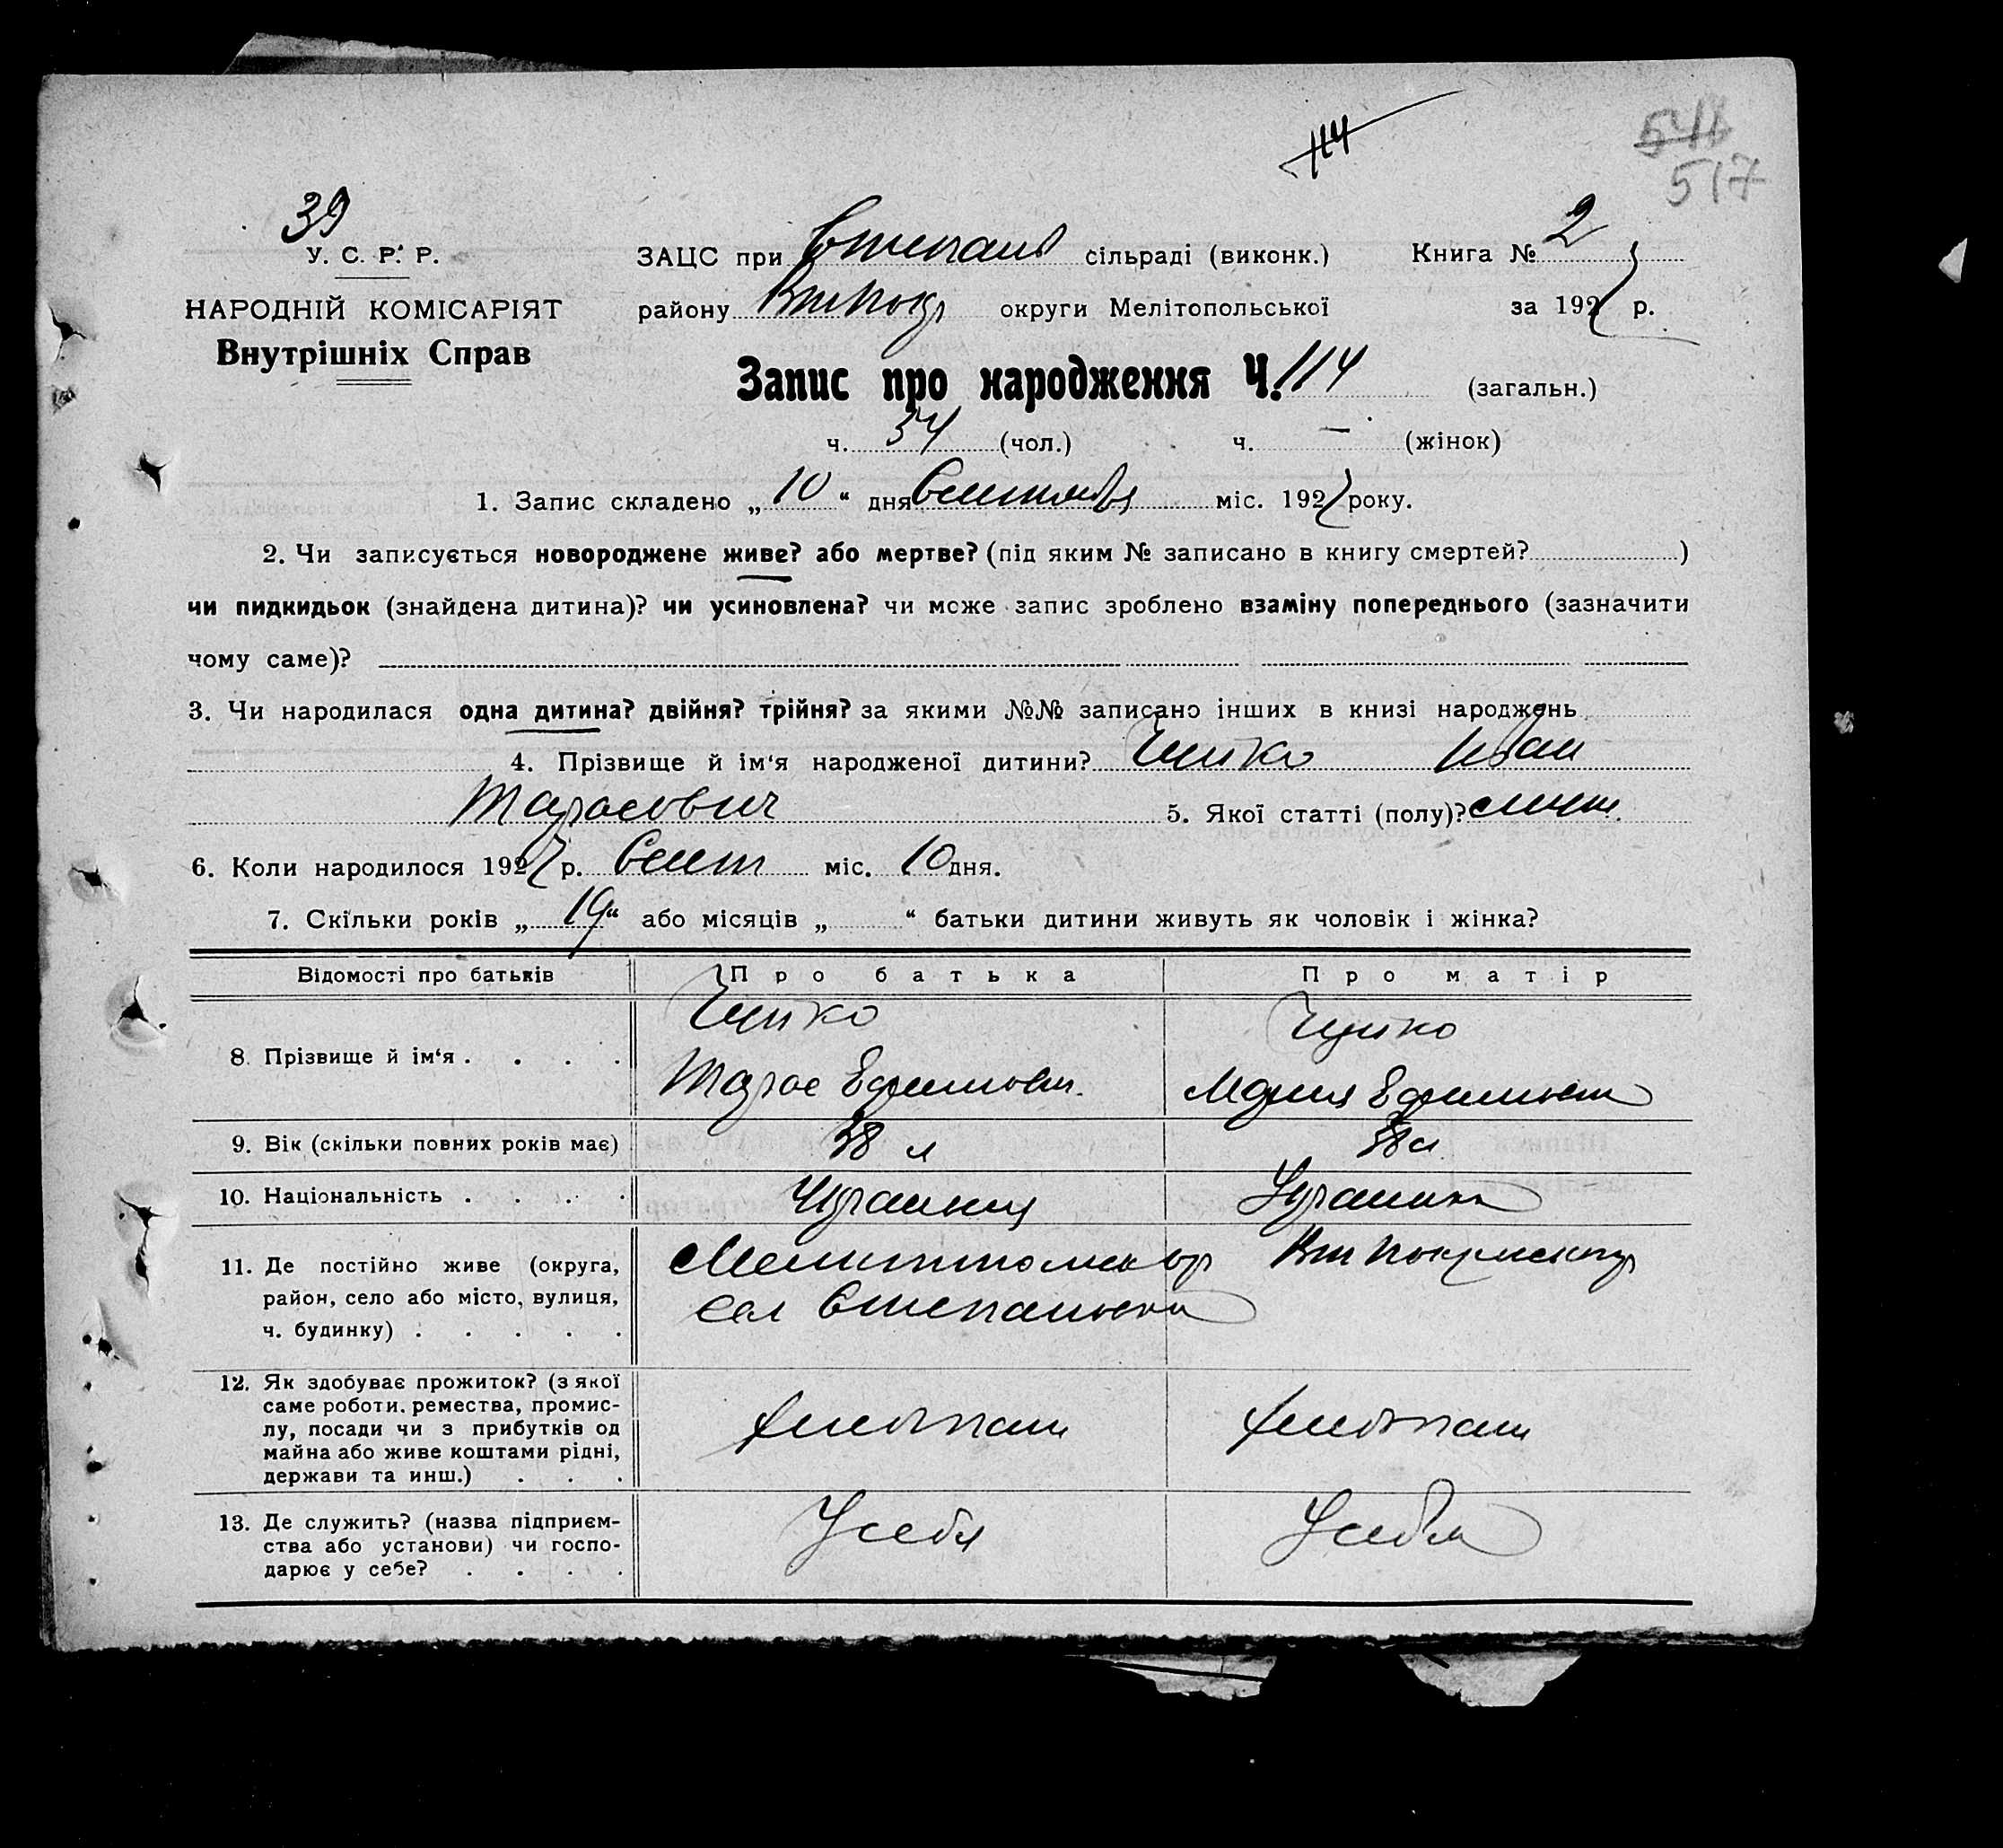 114
546
517
39
У. С. Р. Р.
ЗАЦС при Степанів сільраді (виконк.) Книга № 2
НАРОДНІЙ КОМІСАРІЯТ
району округи Мелітопольської за 1927 р.
Внутрішніх Справ
Запис про народження Ч. 114 (загальн.)
ч. 54 (чол.) ч. — (жінок)
1. Запис складено „ 10 “ дня Сентября міс. 1927 року.
2. Чи записується новороджене живе? або мертве? (під яким № записано в книгу смертей? )
чи пидкидьок (знайдена дитина)? чи усиновлена? чи може запис зроблено взаміну попереднього (зазначити
чому саме)?
3. Чи народилася одна дитина? двійня? трійня? за якими №№ записано інших в книзі народжень
4. Прізвище й ім‘я народженої дитини? Иван
Тарасович 5. Якої статті (полу)?
6. Коли народилося 1927 р. Сент міс. 10 дня.
7. Скільки років „ 19 “ або місяців „ “ батьки дитини живуть як чоловік і жінка?
Відомості про батьків Про батька Про матір
8. Прізвище й ім‘я . . . .
Тарас Ефимович Мария Ефимовна
9. Вік (скільки повних років має) 38 л 38 л
10. Національність . . . . Украинец Украинка
11. Де постійно живе (округа,
район, село або місто, вулиця,
ч. будинку) . . . . .
сел Степановка
12. Як здобуває прожиток? (з якої
саме роботи, ремества, промис-
лу, посади чи з прибутків од
майна або живе коштами рідні,
держави та инш.) . . .
хлебопаш хлебопаш
13. Де служить? (назва підприєм-
ства або установи) чи госпо-
дарює у себе? . . . .
У себя У себя